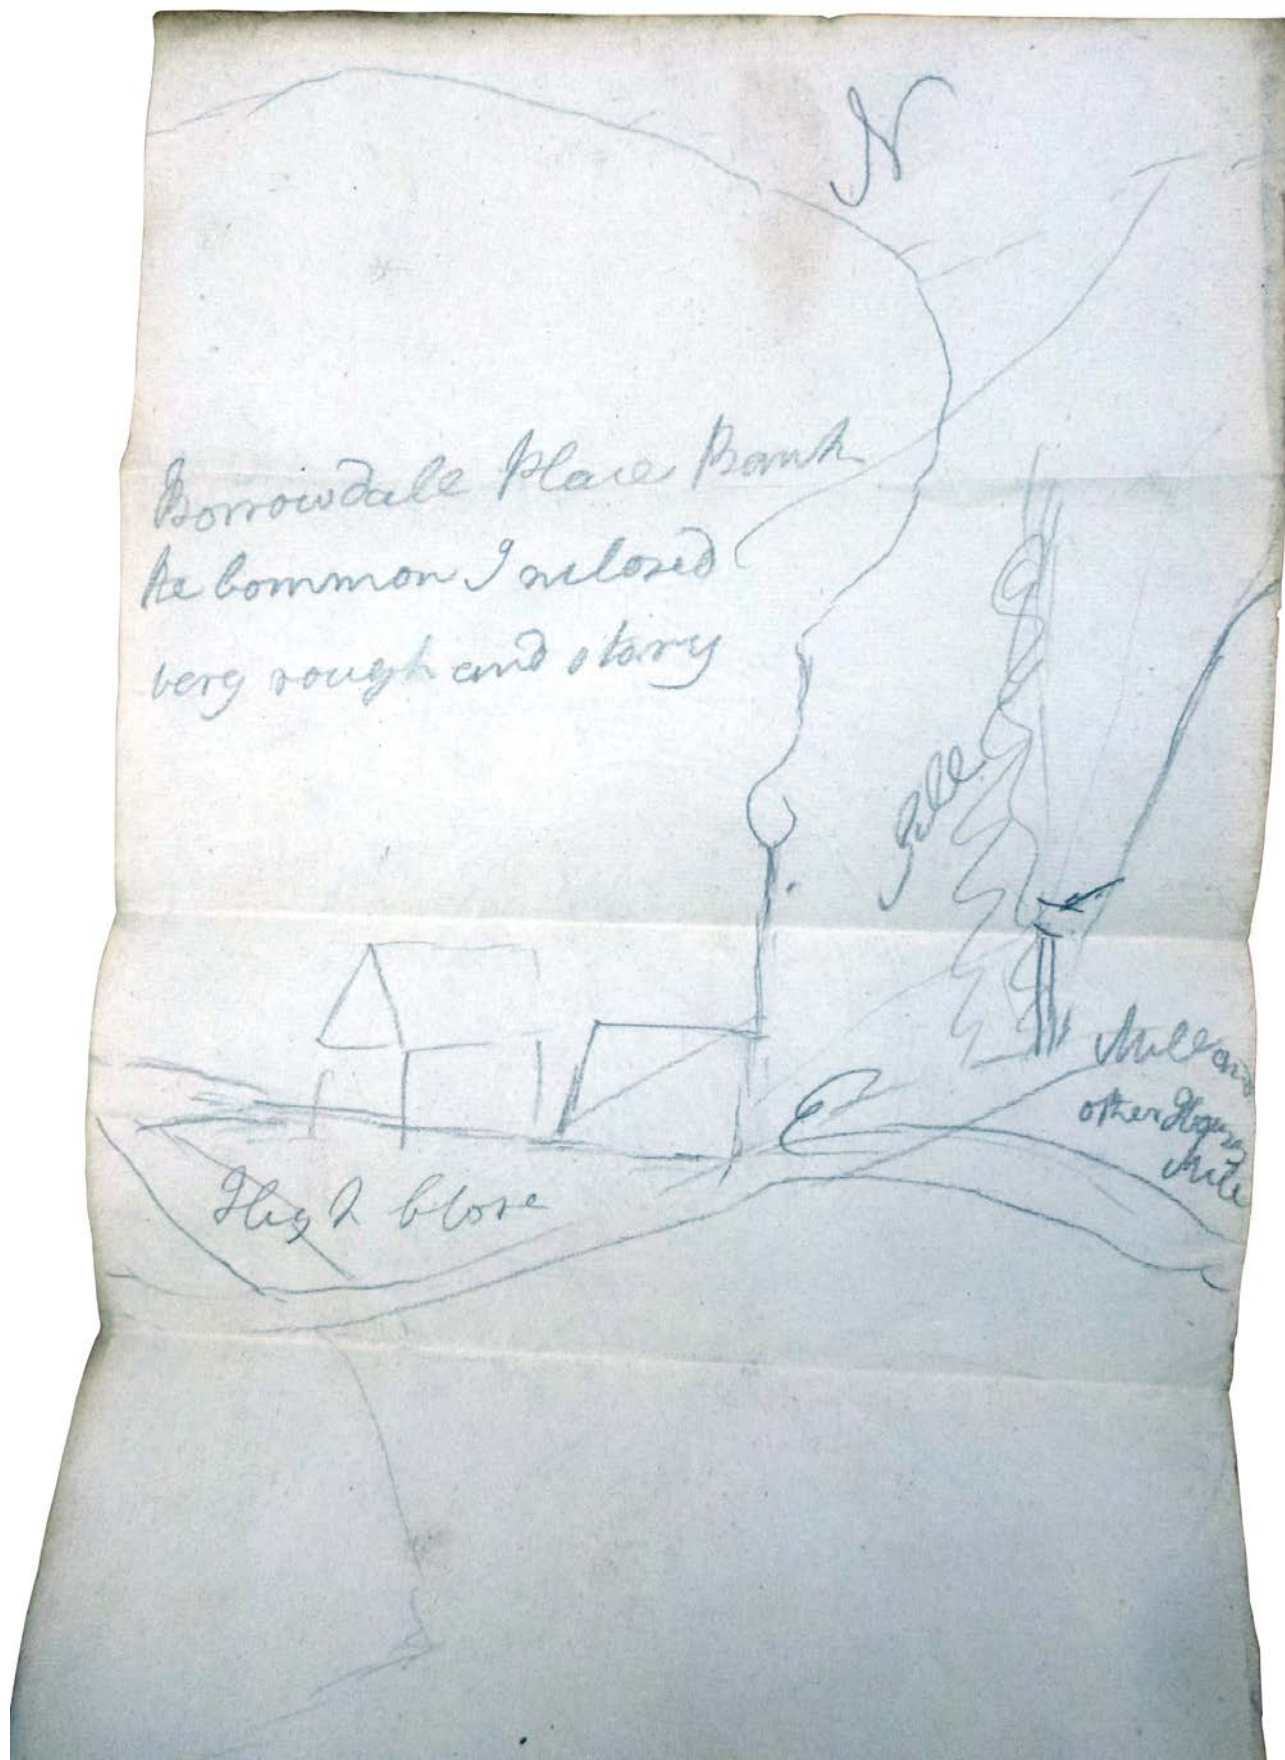 N
Borrowdale Place Bank
common Inclosed
very rough and stony
Gill
Mill and
other
High Close